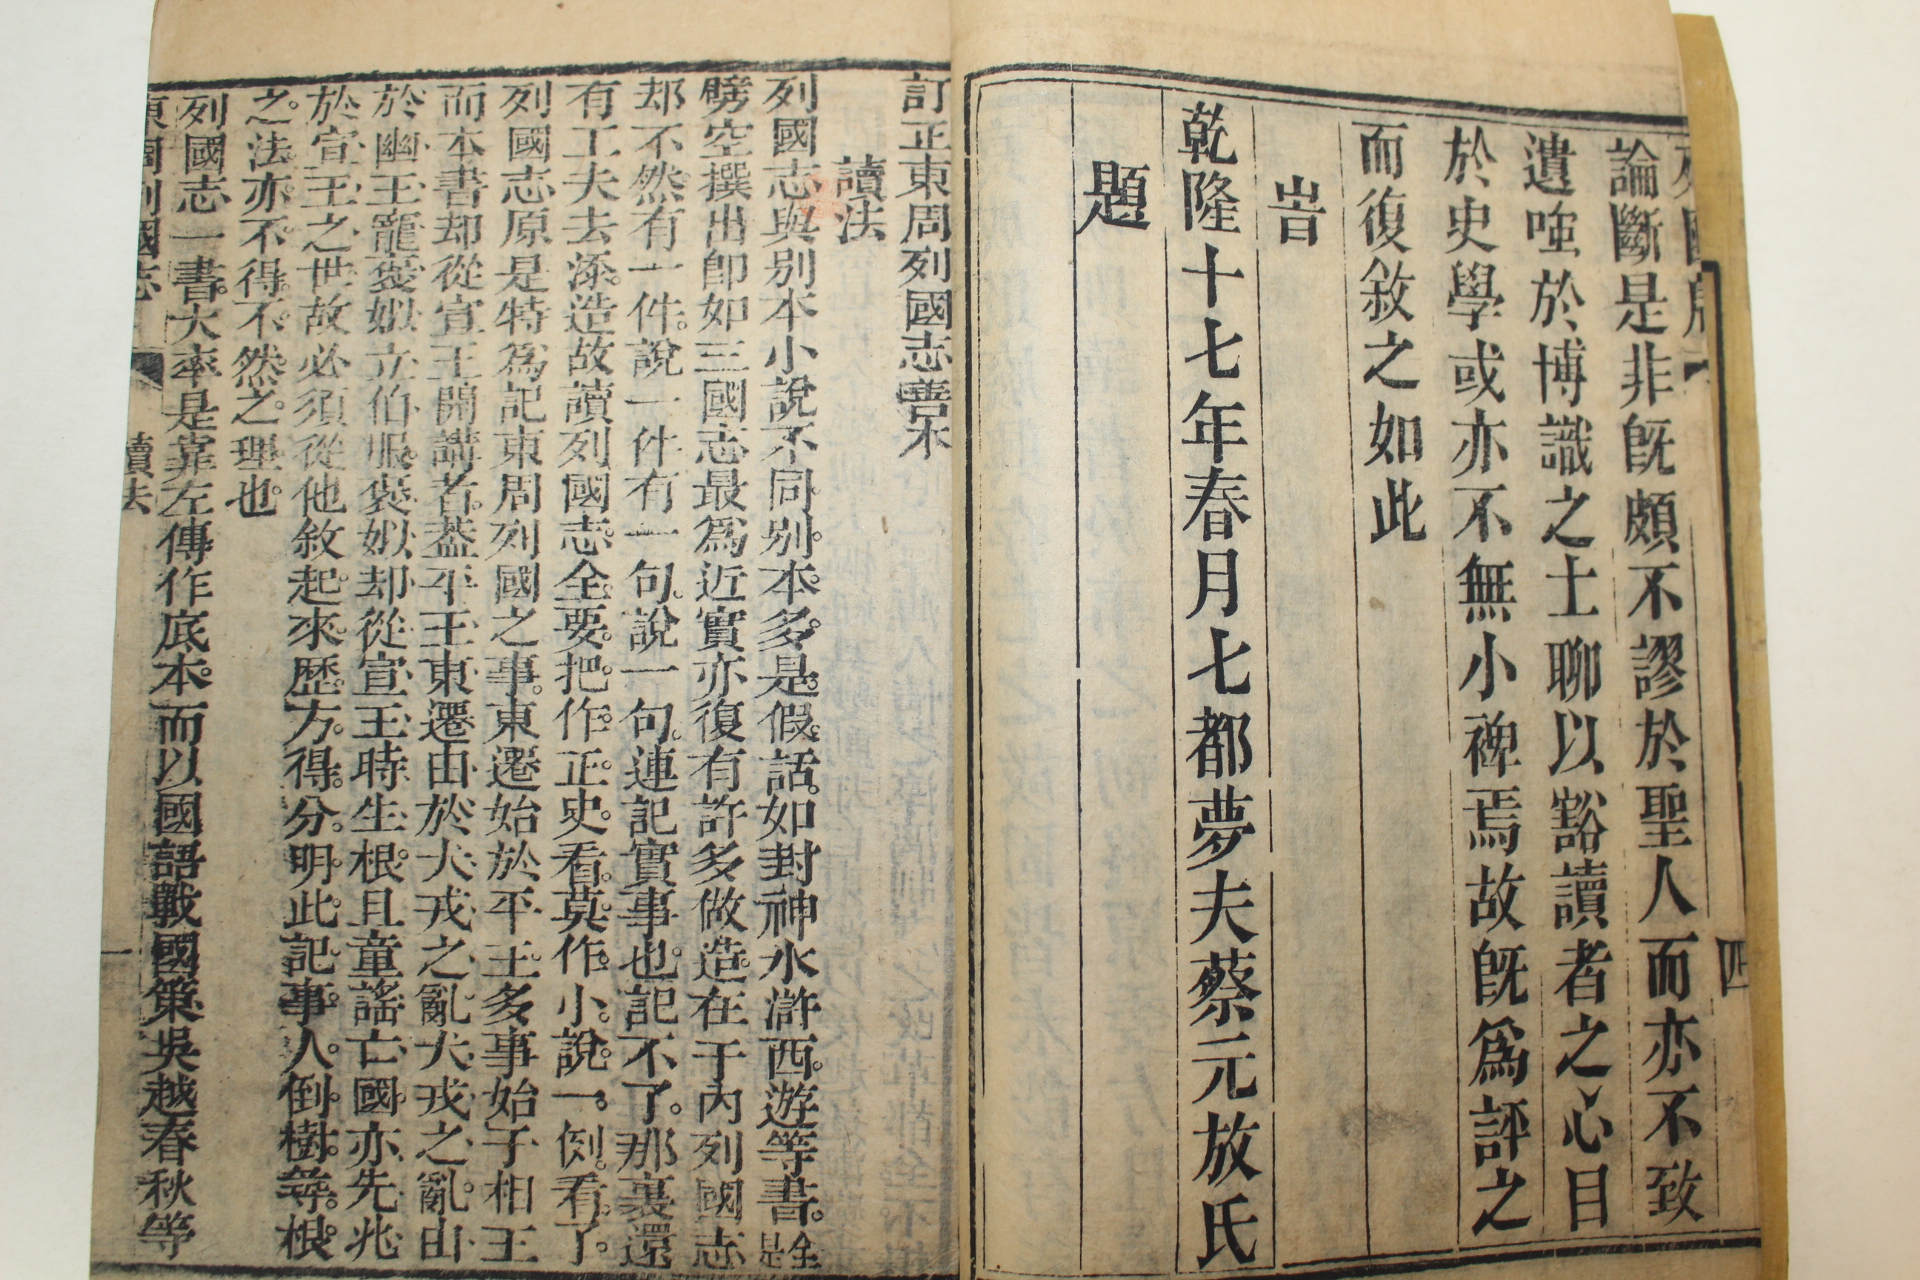 論斷是非旣頗不謬於聖人而亦不致
遺嗤於博識之士聊以豁讀者之心目
於史學或亦不無小裨焉故旣爲評之
而復敘之如此
旹
乾隆十七年春月七都夢夫蔡元放氏
題
四
訂正東周列國志善本
讀法
列國志與别本小說不同。别本多是假話。如封神水滸西遊等書。全是
劈空撰出卽如三國志最爲近實亦復有許多做造在于內列國志
却不然。有一件。說一件有一句。說一句。連記實事也。記不了。那裏還
有工夫去添。造故讀列國志。全要。把。作。正。史。看。莫。作。小。說。一。例。看。了。
列國志原是特爲記東周列國之事。東遷始於平王。多事始子相王
而本書却從宣王開講者。葢平王東遷由於犬戎之亂。犬戎之亂。由
於幽王寵褒姒立伯服。褒姒却從宣王時生。根且童謠亡國亦先兆
於宣王之世故必須從他敘起。來。歷。方。得。分。明。此。記。事。人。倒。樹。尋。根。
之。法亦不得。不然。之。理。也。
列國志一書。大率是靠左傳作底本。而以國語戰國策吳越春秋等
東周列國志
讀法
一